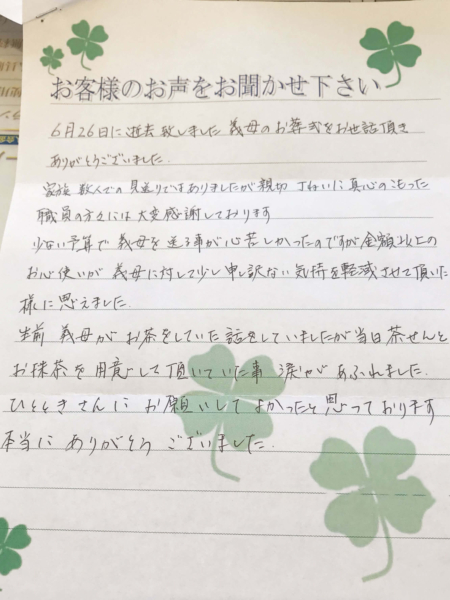 お客様のお声をお聞かせ下さい
6月26日に逝去致しました 義母のお葬式をお世話頂き
ありがとうございました.
家族 数人での 見送りではありましたが親切 丁ねいに 真心のこもった
職員の方々には 大変感謝しております
少ない予算で 義母を 送る事が心苦しかったのですが 金額以上の
お心使いが 義母に対して少し申し訳ない気持を軽減させて頂いた
様に思えました.
生前 義母が お茶をしていた話をしていましたが当日 茶せんと
お抹茶を用意して頂いていた事 涙が あふれました.
ひとときさんに お願いして よかったと思っております
本当に ありがとう ございました.